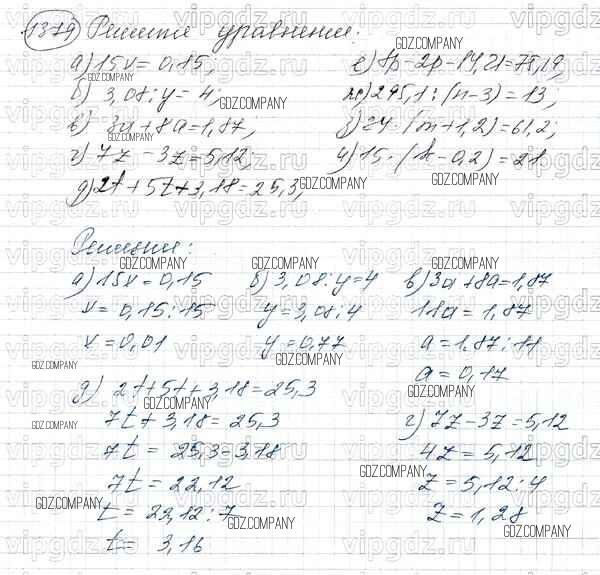 1379 Решите уравнение:
а) 15x = 0,15; е) 7p - 2p - 14,21 = 75,19;
б) 3,08 : y = 4; ж) 295,1 : (n - 3) = 13;
в) 3a + 8a = 1,87; з) 34 · (m + 1,2) = 61,2;
г) 7z - 3z = 5,12; и) 15 · (k - 0,2) = 21.
д) 2t + 5t + 3,18 = 25,3;
Решение:
а) 15x = 0,15 б) 3,08 : y = 4 в) 3a + 8a = 1,87
x = 0,15 : 15 y = 3,08 : 4 11a = 1,87
x = 0,01 y = 0,77 a = 1,87 : 11
a = 0,17
д) 2t + 5t + 3,18 = 25,3
7t + 3,18 = 25,3 г) 7z - 3z = 5,12
7t = 25,3 - 3,18 4z = 5,12
7t = 22,12 z = 5,12 : 4
t = 22,12 : 7 z = 1,28
t = 3,16
GDZ.COMPANY
vipgdz.ru